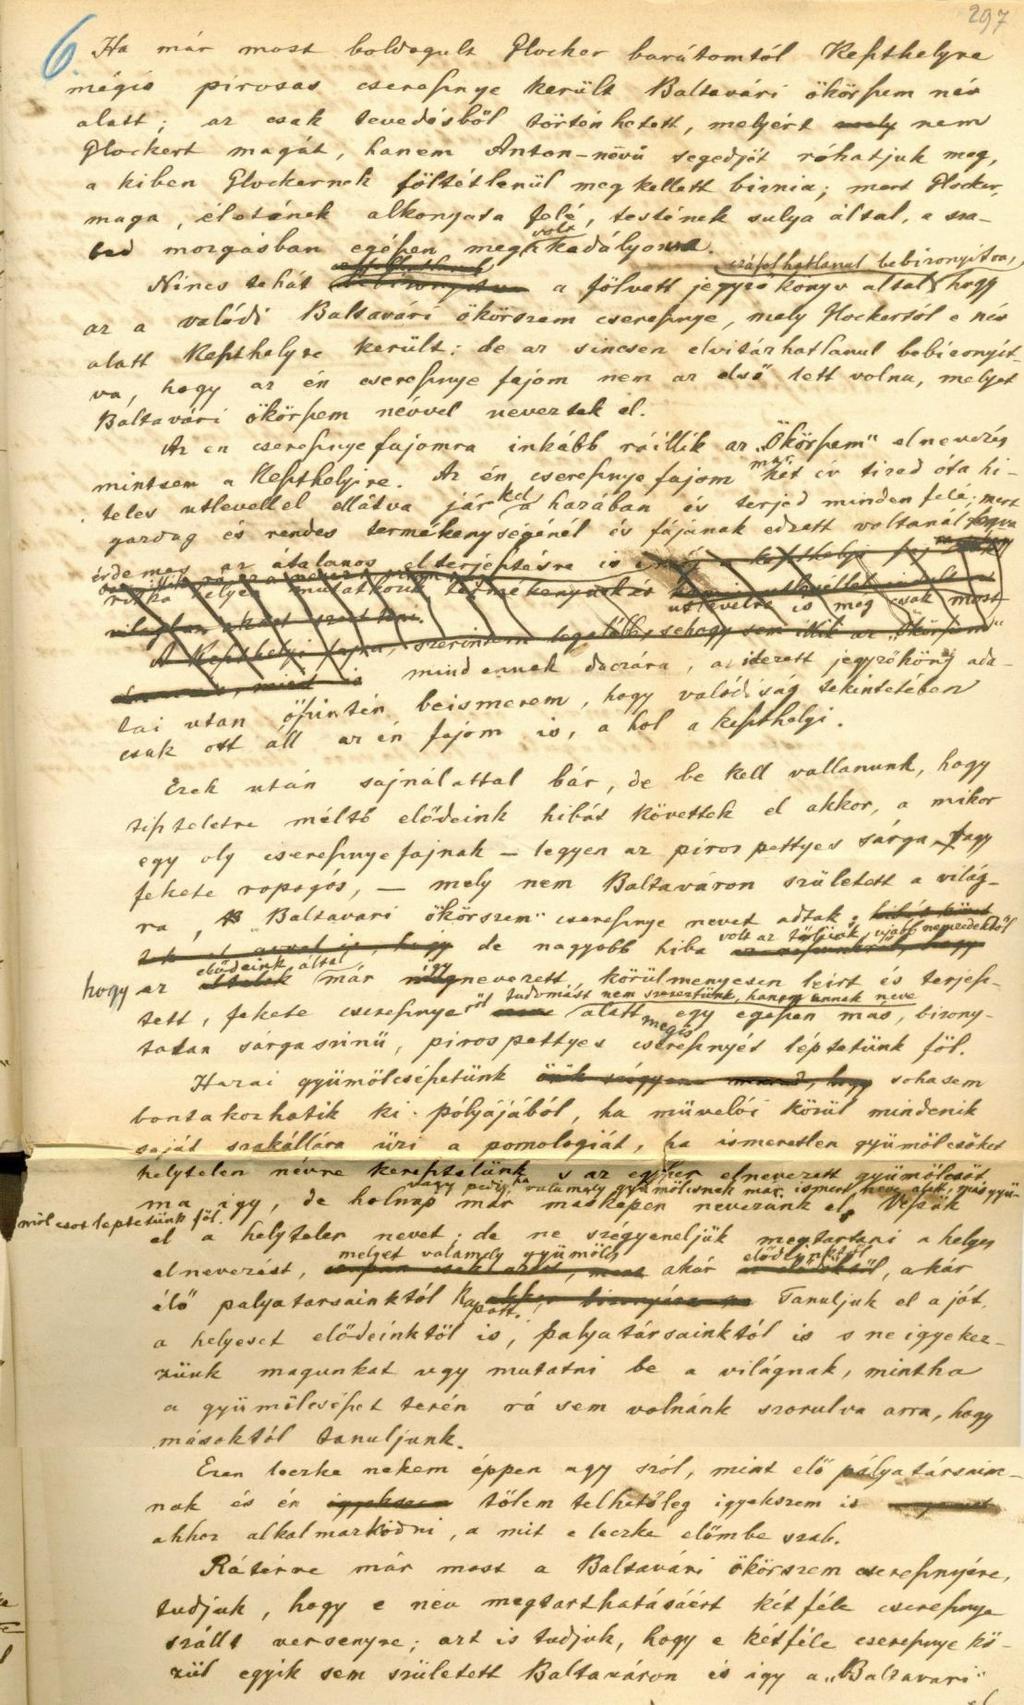 297
6. Ha már most boldogult Glocker barátomtól Keszthelyre
mégis pirosas cseresznye került Baltavári ökörszem név
alatt; az csak tevedésből történhetett, melyért mely nem
Glockert magát, hanem Anton-nevü segedjét róhatjuk meg,
a kiben Glockernek föltétlenül meg kellett biznia; mert Glocker
maga, életének alkonyata felé, testének sulya által, a sza-
bad mozgásban egészen megakadályozva volt.
Nincs tehát a fölvett jegyzőkönyv által czáfolhatlanul bebizonyitva, hogy
az a valódi Baltavári ökörszem cseresznye, mely Glockertől e név
alatt Keszthelyre került; de az sincsen elvitázhatlanul bebizonyit-
va, hogy az én cseresznye fajom nem az első lett volna, melyet
Baltavári ökörszem névvel neveztek el.
Az en cseresznyefajomra inkább ráillik az „Ökörszem" elnevezés
mintsem a Keszthelyire. Az én cseresznyefajom már két év tized óta hi-
teles utlevellel ellátva jár kel a hazában és terjed minden felé; mert
gazdag és rendes termékenységénél és fájának edzett voltánál fogva
érdemes az átalanos elterjesztésre is
utlevelre is még csak most
A Keszthelyi fajra, szerintem legalább, sehogy sem illik az „Ökörszem"
mind ennek daczára, az idezett jegyzőköny ada-
tai utan őszintén beismerem, hogy valódiság tekintetében
csak ott áll az én fajom is, a hol a keszthelyi.
Ezek után sajnálattal bár, de be kell vallanunk, hogy
tiszteletre méltó elődeink hibát követtek el akkor, a mikor
egy oly cseresznyefajnak — legyen az piros pettyes sárga, vagy
fekete ropogós, — mely nem Baltaváron született a világ-
ra, „Baltavari ökörszem" cseresznye nevet adtak;
de nagyobb hiba volt az tőlünk, ujabb nemzedéktől
hogy az elődeink által már igy nevezett körülmenyesen leirt és terjesz-
tett, fekete cseresznyeről tudomást nem szereztünk, hanem ennek neve
alatt mégis egy egészen mas, bizony-
talan sárga szinü, piros pettyes cseresznyét léptetünk föl.
Hazai gyümölcsészetünk örök szégyene marad, hogy sohasem
bontakozhatik ki pólyájából, ha müvelői közül mindenik
saját szakállára üzi a pomologiát, ha ismeretlen gyümölcsöket
helytelen névre keresztelünk s az egyszer elnevezett gyümölcsöt
ma igy, de holnap már maskepen nevezünk el, vagy pedig, ha valamely gyümölcsnek már ismert neve alatt, más gyü-
mölcsöt léptetünk föl. Vessük
el a helytelen nevet; de ne szégyeneljük megtartani a helyes
elnevezést, melyet valamely gyümölcs akár elődeinktől, akár
élő palyatarsainktól kapott. Tanuljuk el a jót,
a helyeset elődeinktől is, pályatársainktól is s ne igyekez-
zünk magunkat ugy mutatni be a világnak, mintha
a gyümölcsészet terén rá sem volnánk szorulva arra, hogy
másoktól tanuljunk.
Ezen leczke nekem éppen ugy szól, mint elő pályatársaim-
nak és én igyekszem tőlem telhetőleg igyekszem is
ahhoz alkalmazkodni, a mit e leczke előmbe szab.
Rátérve már most a Baltavári ökörszem cseresznyére,
tudjuk, hogy e nev megtarthatásáért kétféle cseresznye
szállt versenyre; azt is tudjuk, hogy e kétféle cseresznye kö-
zül egyik sem született Baltaváron és igy a „Baltavari"
el